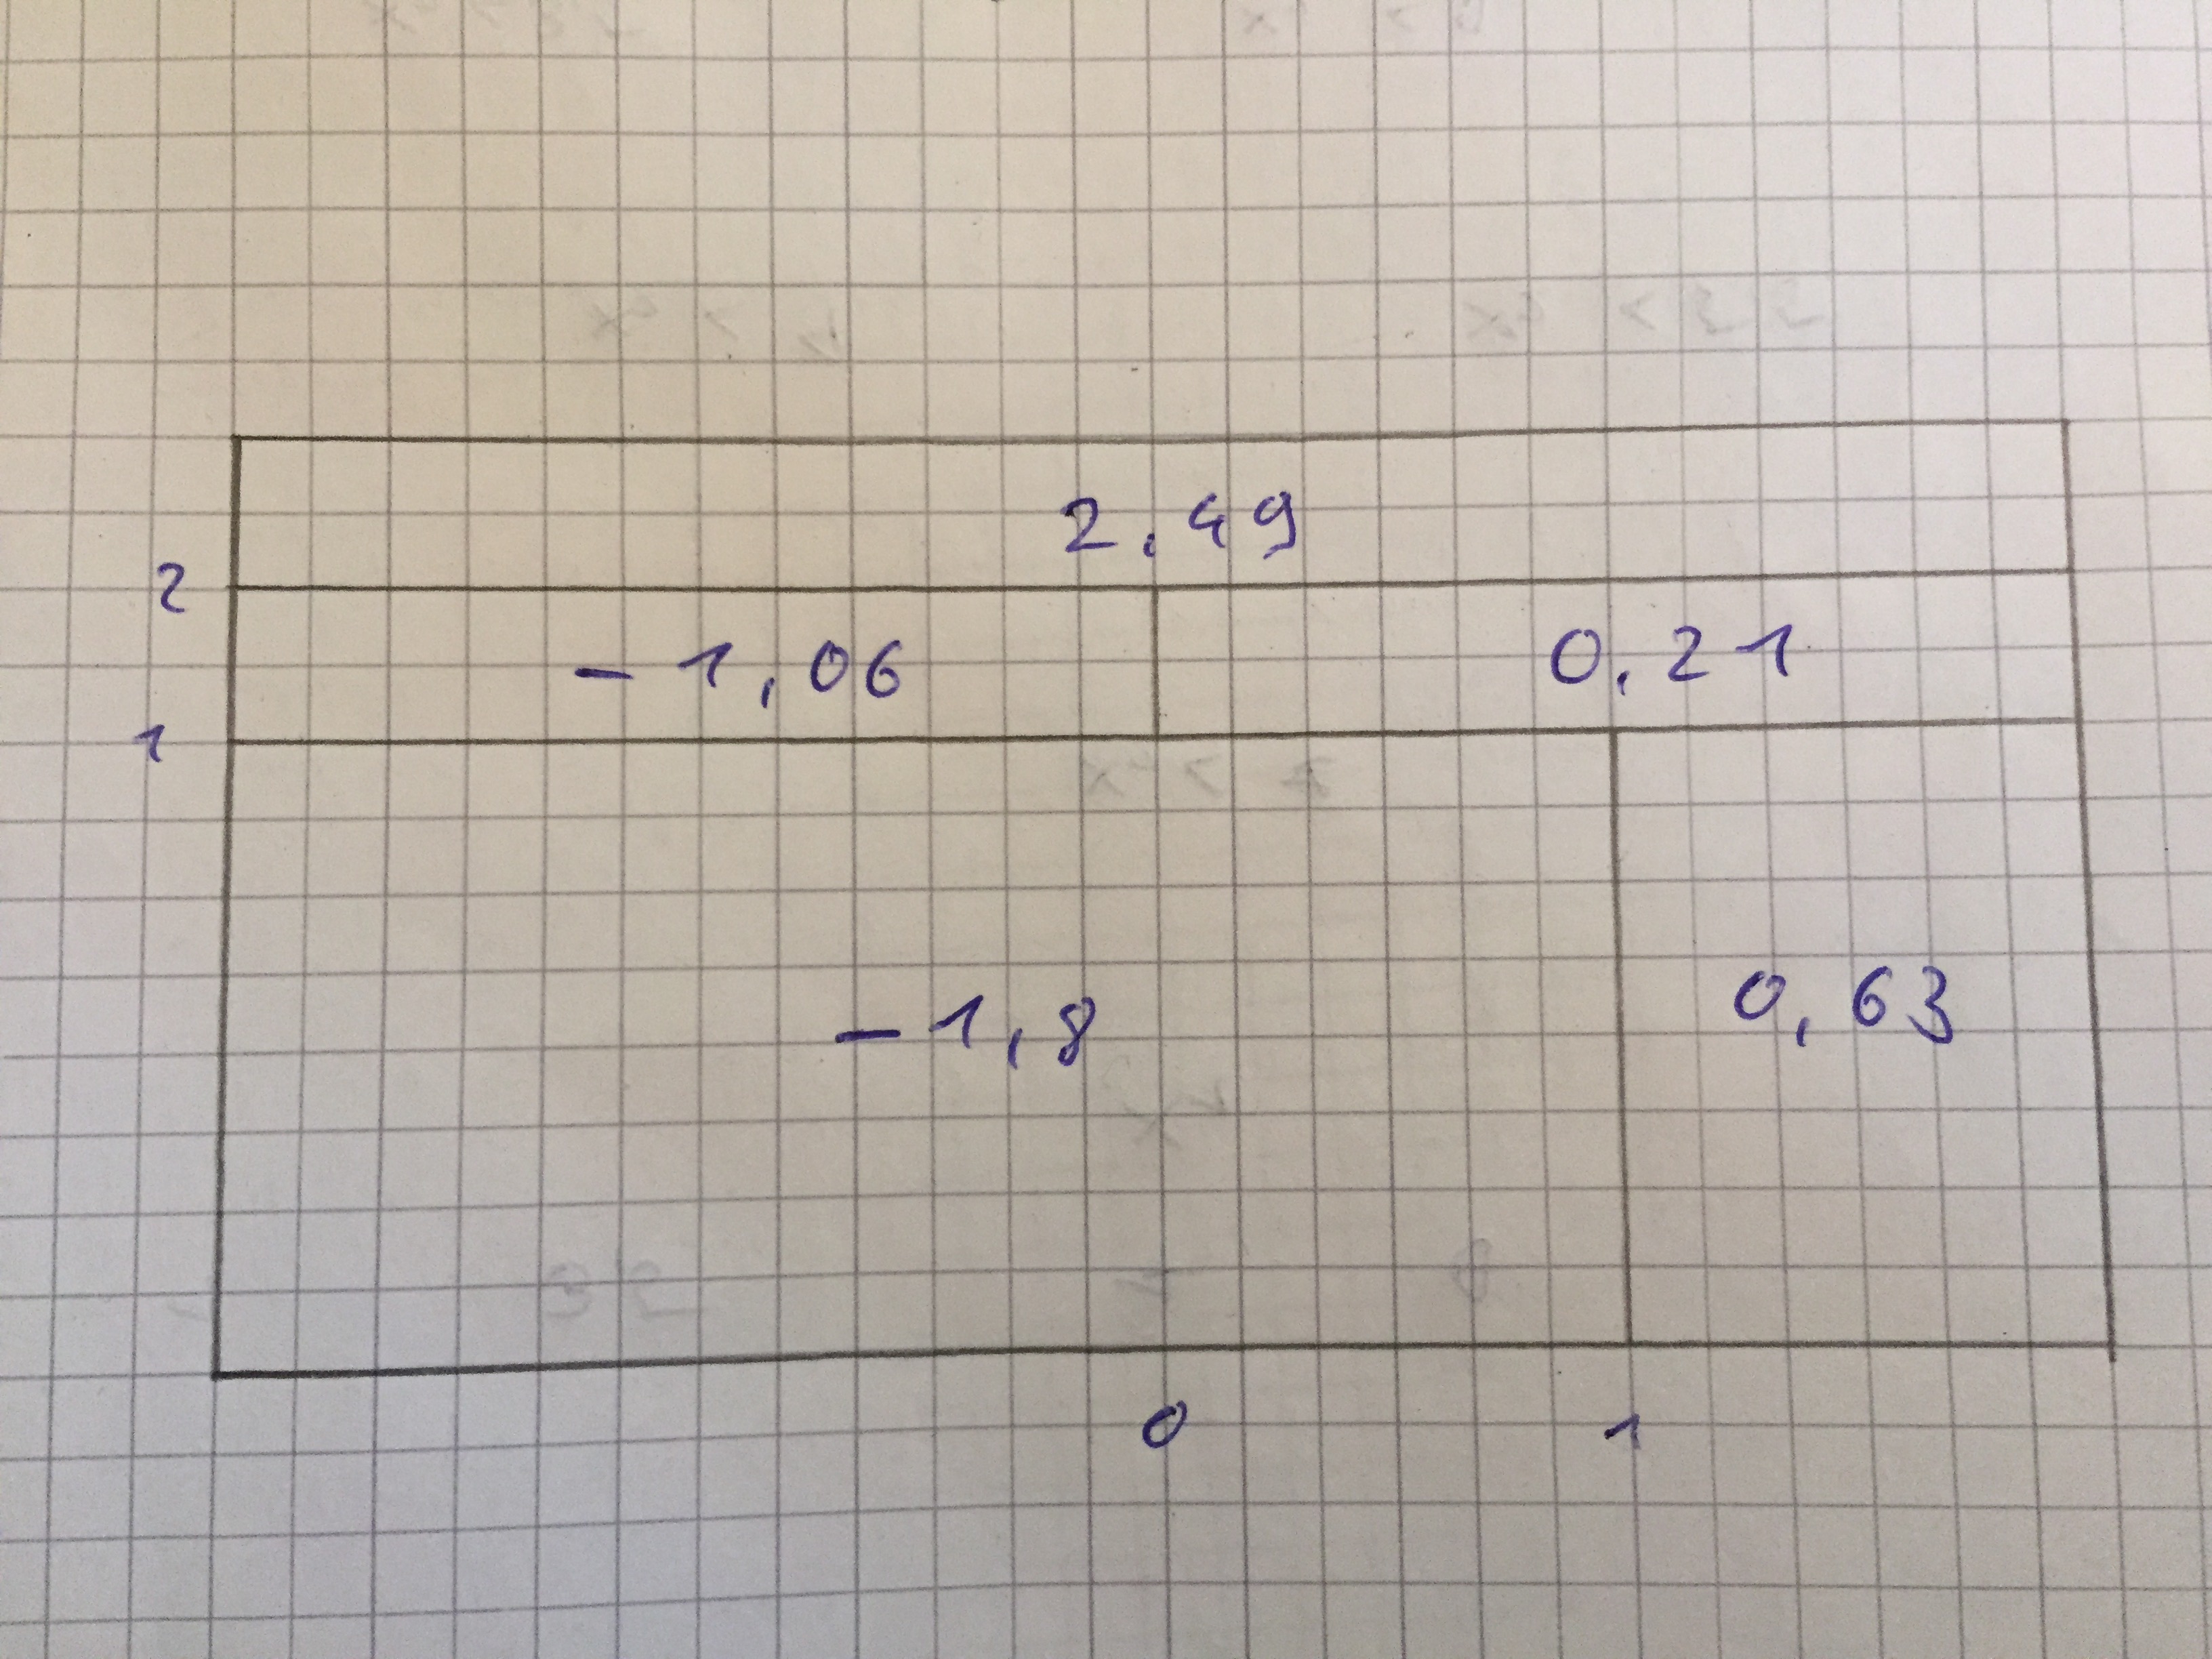 2,49
2
-1,06 0,21
1
-1,8 0,63
0 1